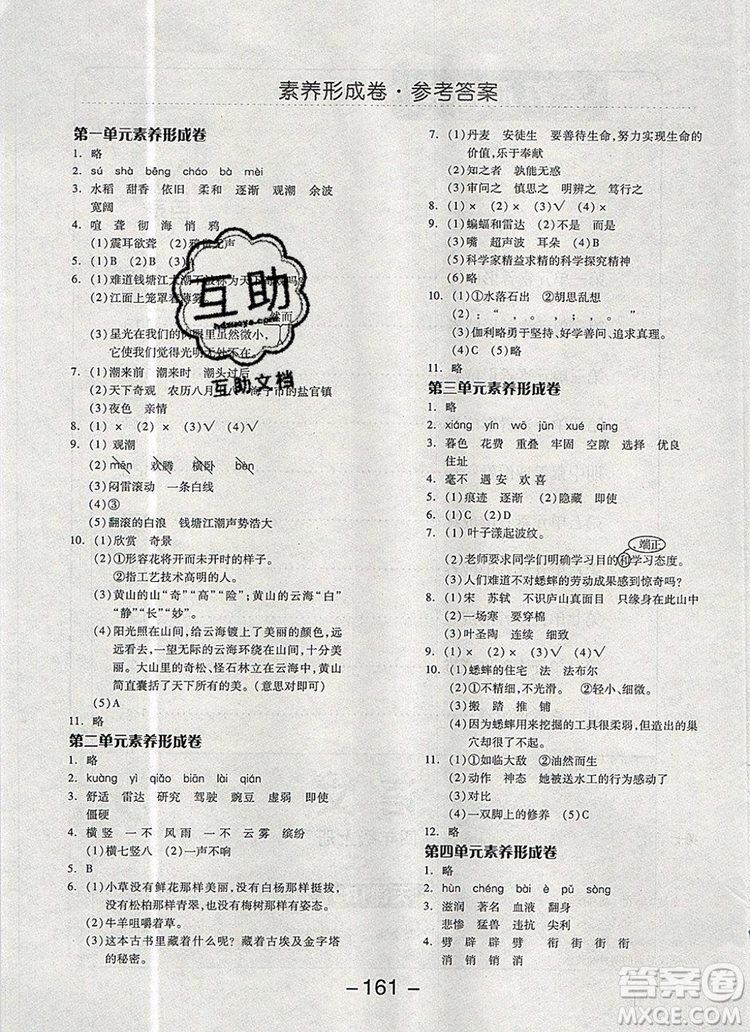 素养形成卷·参考答案
第一单元素养形成卷
1. 略
2. sú shà bēng cháo bà mèi
3. 水稻 甜香 依旧 柔和 逐渐 观潮 余波
宽阔
4. 喧 聋 彻 海 悄 鸦
(1)震耳欲聋 (2)鸦雀无声
5. (1)B (2)A (3)B
6. (1)难道钱塘江大潮不被称为天下奇观吗?
(2)江面上笼罩着薄雾。
然而
(3)星光在我们的肉眼里虽然微小,
它使我们觉得光明无处不在。
7. (1)潮来前 潮来时 潮头过后
(2)天下奇观 农历八月十八 海宁市的盐官镇
(3)夜色 亲情
8. (1)× (2)× (3)√ (4)√
9. (1)观潮
(2)mēn 欢腾 横卧 bèn
(3)闷雷滚动 一条白线
(4)③
(5)翻滚的白浪 钱塘江潮声势浩大
10. (1)欣赏 奇景
(2)①形容花将开而未开时的样子。
②指工艺技术高明的人。
(3)黄山的山“奇”“高”“险”;黄山的云海“白”
“静”“长”“妙”。
(4)阳光照在山间,给云海镀上了美丽的颜色,
远远望去,一望无际的云海变得十分完
美。大山里的奇松、怪石林立在云海中,黄山
简直囊括了天下所有的美。(意思对即可)
(5)A
11. 略
第二单元素养形成卷
1. 略
2. kuàng yì qiǎo biān lài qìng
3. 舒适 雷达 研究 驾驶 豌豆 虚弱 即将
僵硬
4. 横 竖 一 不 风 雨 一 不 云 雾 缤纷
(1)横七竖八 (2)一声不吭
5. B
6. (1)小草没有鲜花那样美丽,没有白杨那样挺拔,
没有松柏那样青翠,也没有梅树那样有姿态。
(2)牛羊咀嚼着草。
(3)这本古书里藏着什么呢?藏着古埃及金字塔
的秘密。
7. (1)丹麦 安徒生 要善待生命,努力实现生命的
价值,乐于奉献
(2)知之者 孰能无惑
(3)审问之 慎思之 明辨之 笃行之
8. (1)× (2)× (3)√ (4)×
9. (1)蝙蝠和雷达 (2)不是 而是
(3)嘴 超声波 耳朵 (4)B
(5)科学家精益求精的科学探究精神
10. (1)①水落石出 ②胡思乱想
(2): “ , 。 , 。 ”
(3)伽利略勇于坚持、好学善问、追求真理。
11. 略
第三单元素养形成卷
1. 略
2. xiáng yín wō jūn xué qīng
3. 暮色 花费 重叠 牢固 空隙 选择 优良
住址
4. 毫不 遇 安 欢 喜
5. (1)痕迹 逐渐 (2)隐藏 即使
6. (1)C (2)D (3)B (4)D
7. (1)叶子漾起波纹。
端正
(2)老师要求同学们明确学习目的和学习态度。
(3)人们难道不对蟋蟀的劳动成果感到惊奇吗?
8. (1)宋 苏轼 不识庐山真面目 只缘身在此山中
(2)一场寒 要穿棉
(3)叶圣陶 连续 细致
9. (1)× (2)√ (3)√ (4)×
10. (1)蟋蟀的住宅 法 法布尔
(2)①粗糙,不平,不光滑。 ②轻小、细微。
(3)搬 踏 推 铺
(4)没想到蟋蟀用来挖掘的工具很柔弱,但筑成的巢
穴却很不一般。
11. (1)①如临大敌 ②油然而生
(2)动作 神态 她被送水工的行为感动了
(3)对比
(4)一双脚上的修养 (5)C
12. 略
第四单元素养形成卷
1. 略
2. hùn chéng bài è pǔ sòng
3. 滋润 著名 血液 翻身
悲惨 猛兽 违抗 尖利
4. 劈 辟 辟 劈 衔 衔 衔 衔
消 销 销 消
互助
hdzuoye.com
互助文档
- 161 -
答案圈
MXQE.COM